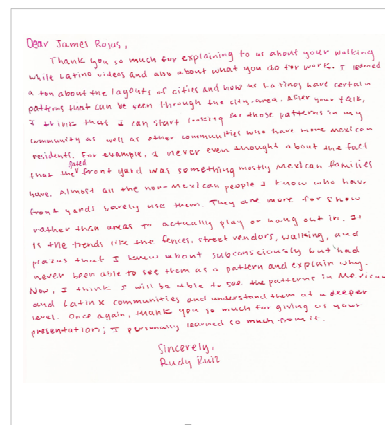 Dear James Rojas,
Thank you so much for explaining to us about your walking
while Latino videos and also about what you do for work. I learned
a ton about the layouts of cities and how us Latinos have certain
patterns that can be seen through the city area. After your talk,
I think that I can start looking for those patterns in my
community as well as other communities who have more Mexican
residents. For example, I never even thought about the fact
that the front yard was something mostly Mexican families
have. Almost all the non-Mexican people I know who have
front yards barely use them. They are more for show
rather than areas to actually play or hang out in. It
is the trends like the fences, street vendors, walking, and
plazas that I knew about subconsciously but had
never been able to see them as a pattern and explain why.
Now, I think I will be able to see the patterns in Mexican
and Latinx communities and understand them at a deeper
level. Once again, thank you so much for giving us your
presentation; I personally learned so much from it.
Sincerely,
Rudy Ruiz